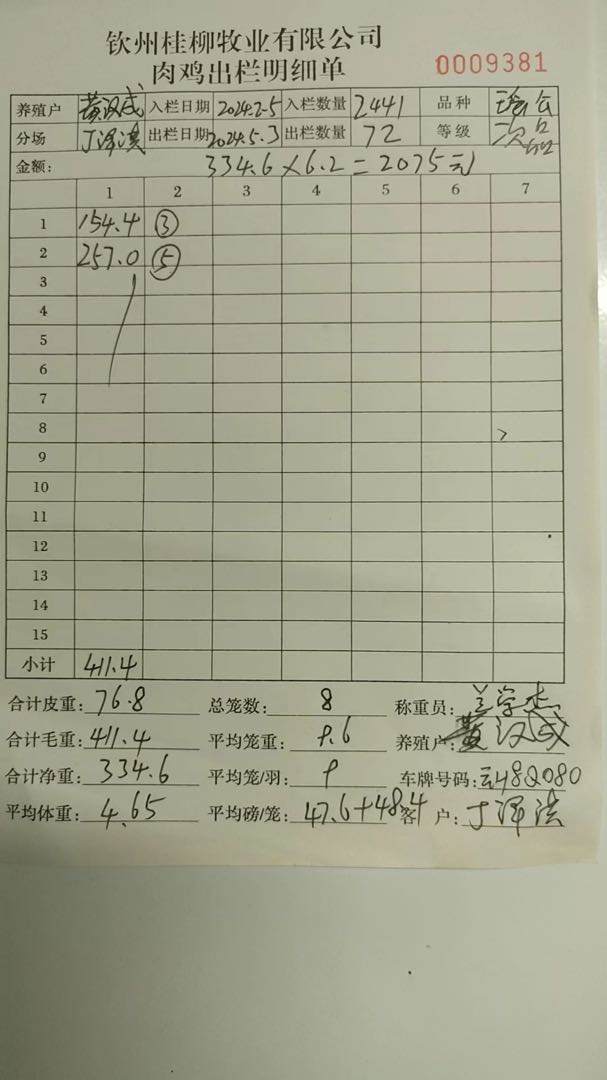 钦州桂柳牧业有限公司
肉鸡出栏明细单
0009381
养殖户 黄汉成 入栏日期 2024.2-5 入栏数量 2441 品种
分场 丁泽洪 出栏日期 2024.5.3 出栏数量 72 等级 次品
金额: 334.6×6.2=2075元
1 2 3 4 5 6 7
1 154.4 ③
2 257.0 ⑤
3
4
5
6
7
8
9
10
11
12
13
14
15
小计 411.4
合计皮重: 76.8 总笼数: 8 称重员: 兰学杰
合计毛重: 411.4 平均笼重: 9.6 养殖户: 黄汉成
合计净重: 334.6 平均笼/羽: 9 车牌号码:
平均体重: 4.65 平均磅/笼: 47.6+48.4 客户: 丁泽洪